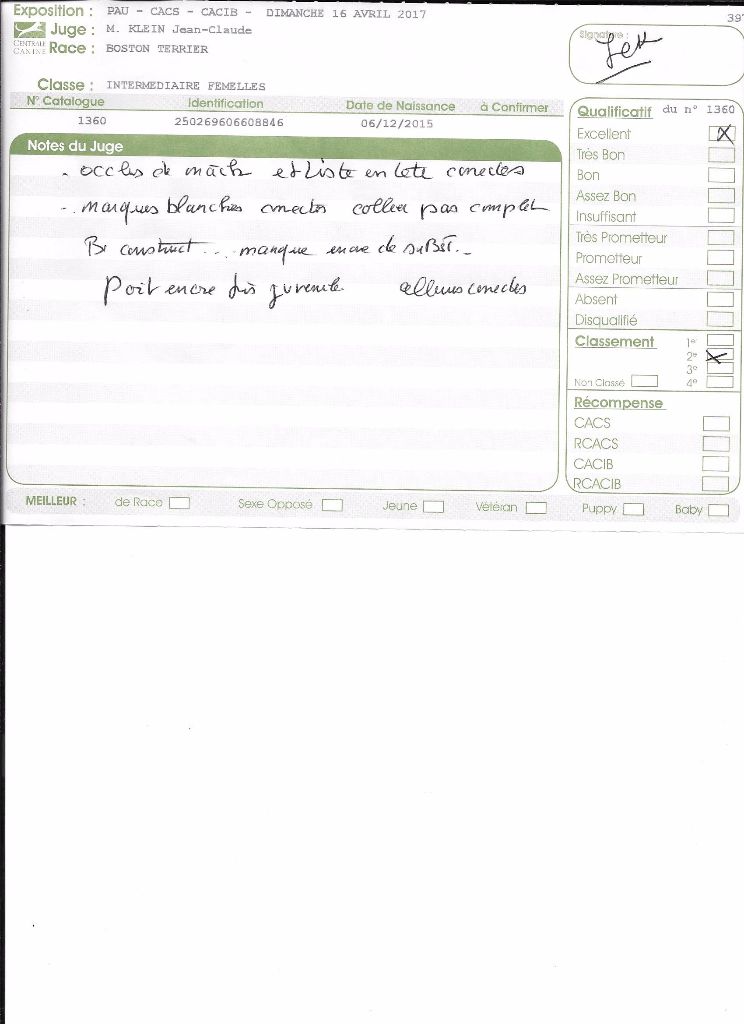 Exposition : PAU - CACS - CACIB - DIMANCHE 16 AVRIL 2017
397
Juge : M. KLEIN Jean-Claude
CENTRALE CANINE
Race : BOSTON TERRIER
Signature :
Classe : INTERMEDIAIRE FEMELLES
N° Catalogue Identification Date de Naissance à Confirmer
1360 250269606608846 06/12/2015
Notes du Juge
de mâch et Liste en tete correctes
marques blanches correctes collier pas complet
Bn construct... manque encore de subst.
Poil encore très juvenile allures correctes
Qualificatif du n° 1360
Excellent X
Très Bon
Bon
Assez Bon
Insuffisant
Très Prometteur
Prometteur
Assez Prometteur
Absent
Disqualifié
Classement 1er
2e X
3e
Non Classé 4e
Récompense
CACS
RCACS
CACIB
RCACIB
MEILLEUR : de Race Sexe Opposé Jeune Vétéran Puppy Baby